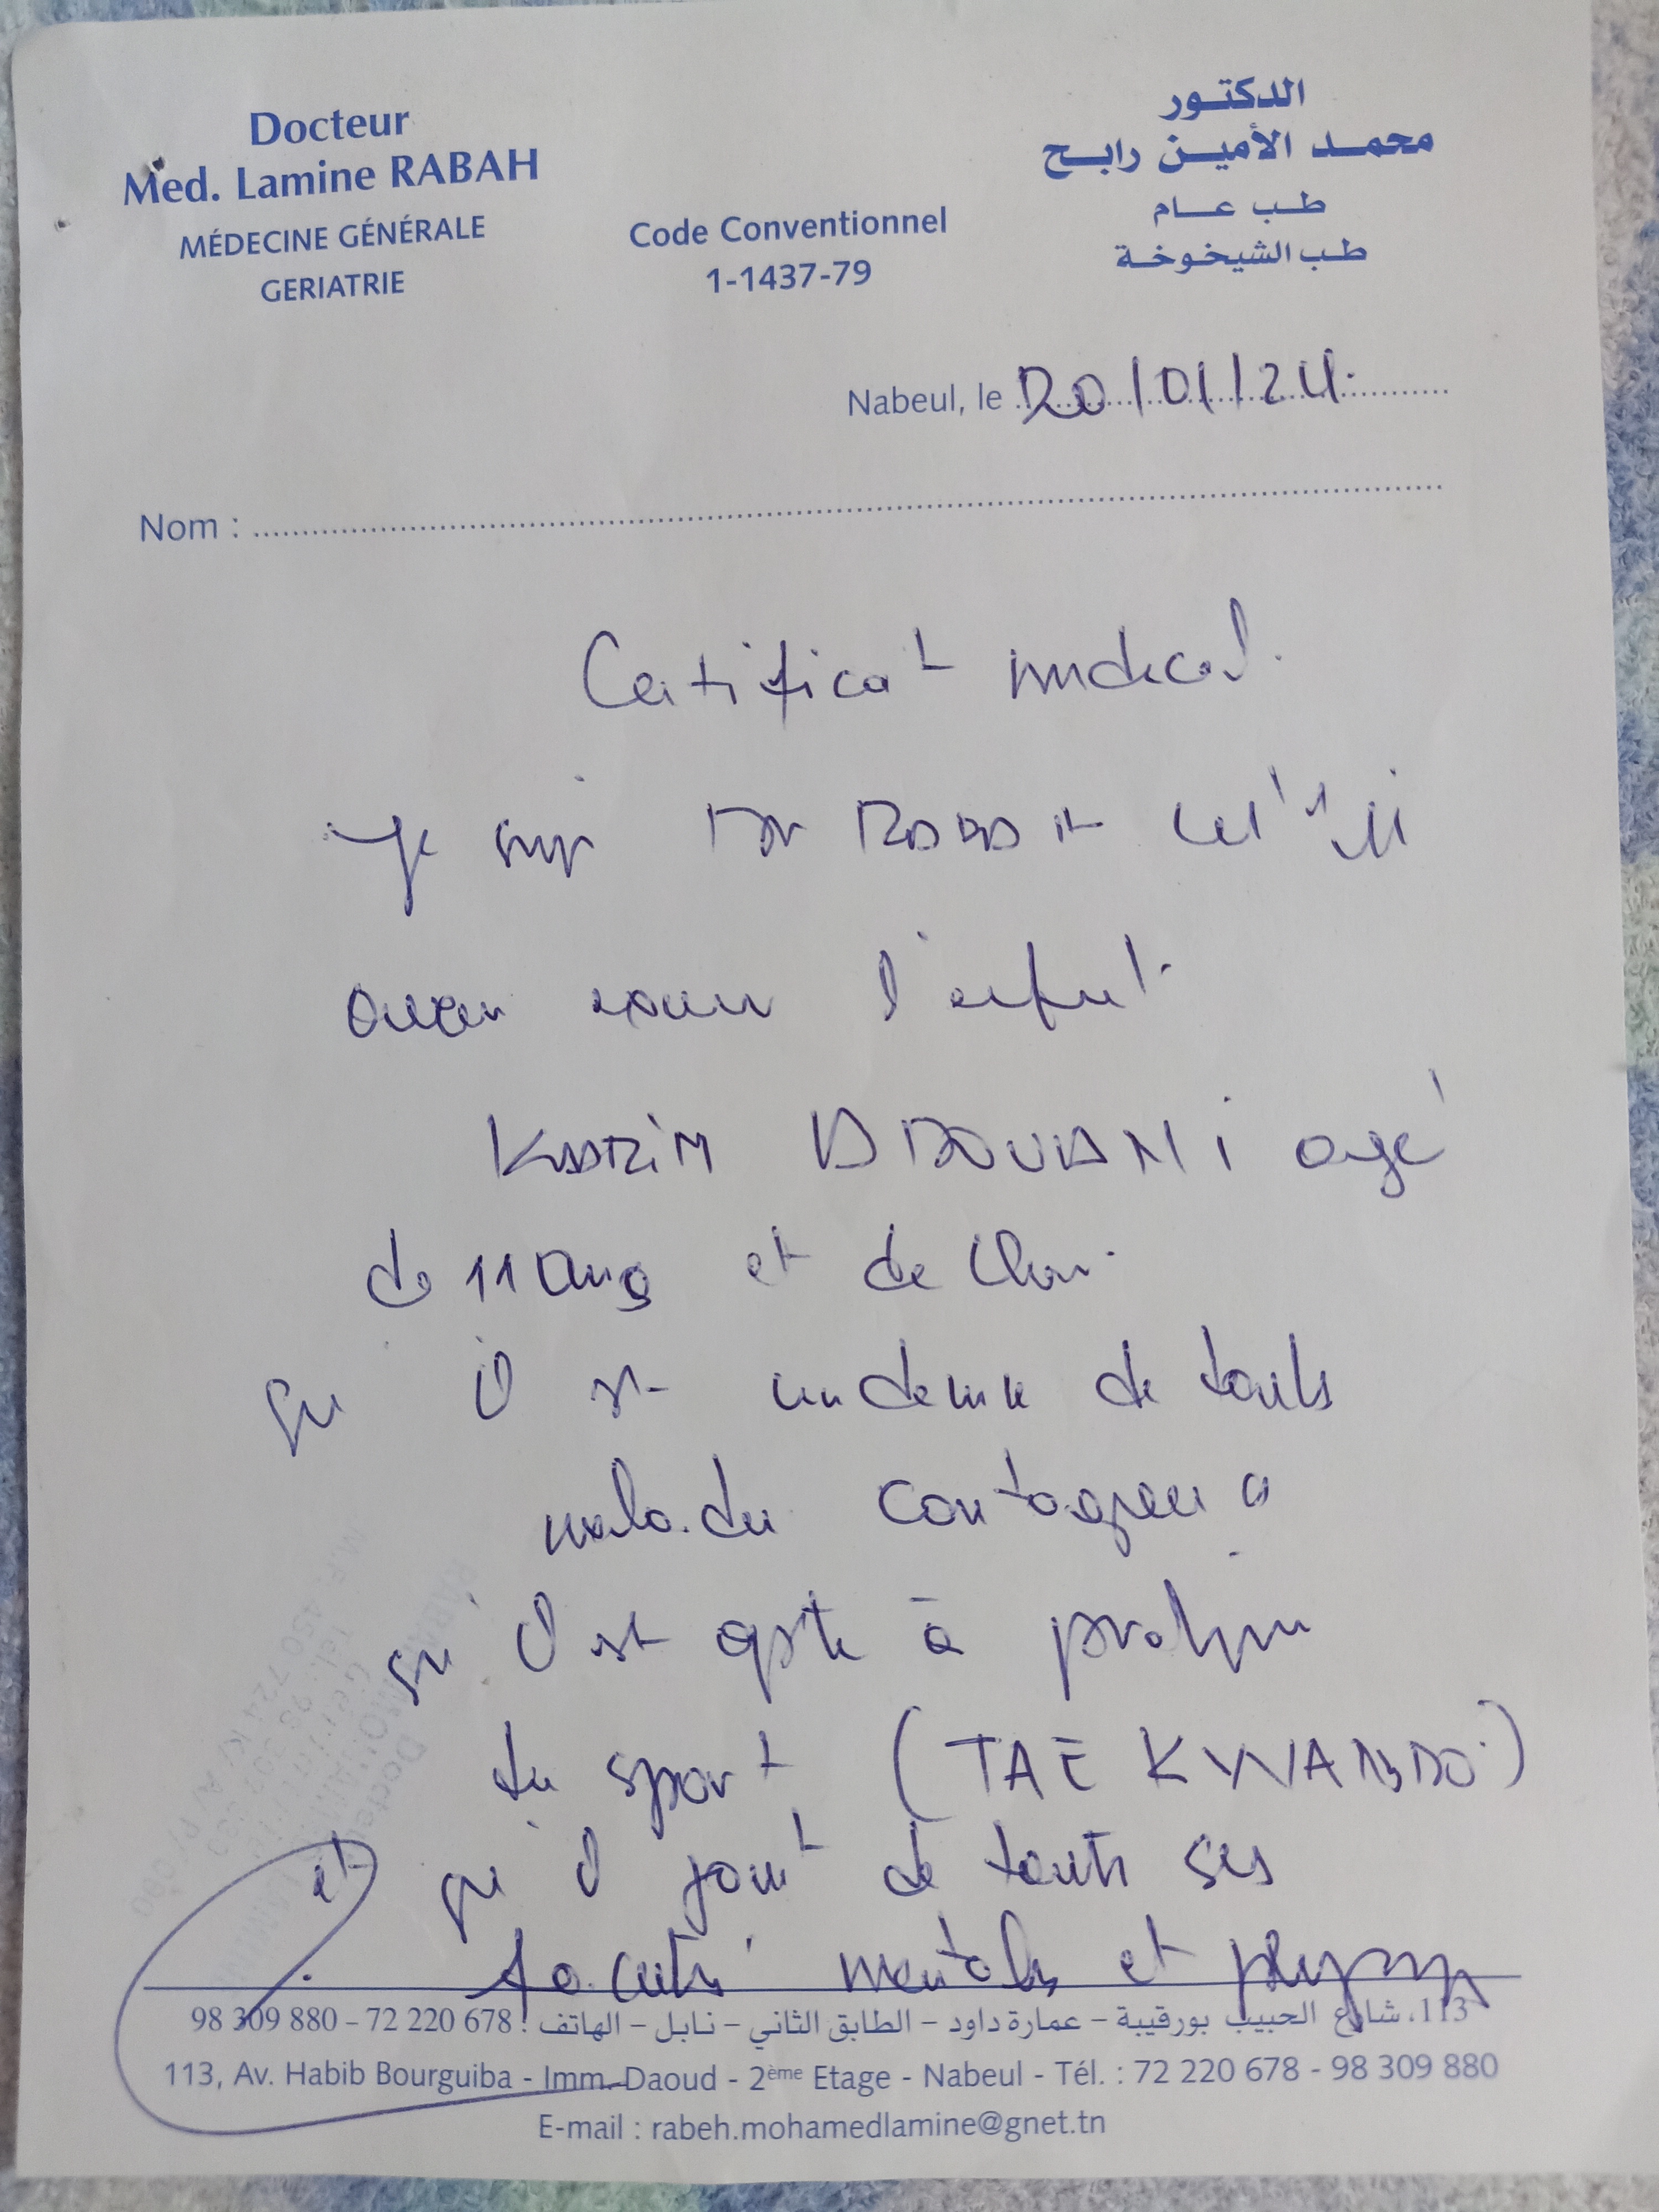 Docteur
Med. Lamine RABAH
MÉDECINE GÉNÉRALE
GERIATRIE
Code Conventionnel
1-1437-79
الدكتور
محمد الأمين رابح
طب عام
طب الشيخوخة
Nabeul, le 20/01/24
Nom :
Certificat medical.
Je Dr RABAH
avoir l'enfant
KARIM agé
de 11 ans et de
qu il est indemne de toutes
maladie contagieu
qu'il est apte à pratiquer
du sport (TAE KWANDO)
et qu il jouit de toutes ses
facultés mentales et
98 309 880 – 72 220 678 : 113، شارع الحبيب بورقيبة – عمارة داود – الطابق الثاني – نابل – الهاتف
113, Av. Habib Bourguiba - Imm. Daoud - 2ème Etage - Nabeul - Tél. : 72 220 678 - 98 309 880
E-mail : rabeh.mohamedlamine@gnet.tn